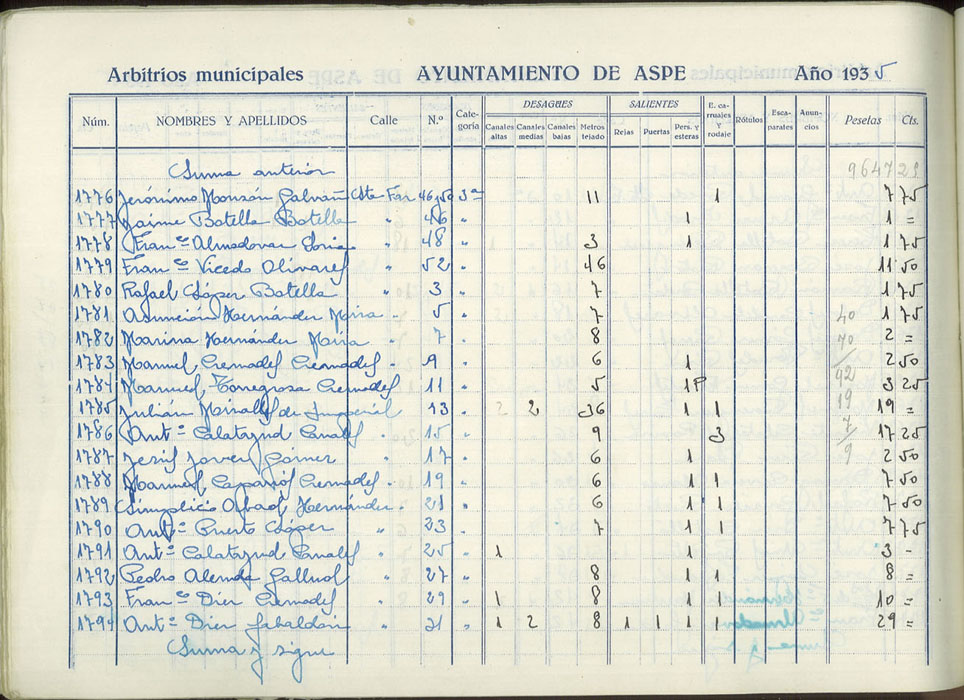 Arbitrios municipales AYUNTAMIENTO DE ASPE Año 1935
Núm. NOMBRES Y APELLIDOS Calle N.º Categoría DESAGÜES SALIENTES E. carruajes y rodaje Rótulos Escaparates Anuncios Pesetas Cts.
Canales altas Canales medias Canales bajas Metros tejado Rejas Puertas Pers. y esteras
Suma anterior 9647 25
1776 Jerónimo Monzón Galván Cste Far 46,50 3ª 11 1 7 75
1777 Jaime Botella Botella " 46 " 1 1 =
1778 Franco Almodovar Soria " 48 " 3 1 1 75
1779 Franco Vicedo Olivares " 52 " 46 11 50
1780 Rafael López Botella " 3 " 7 1 75
1781 Asunción Hernández Mira " 5 " 7 1 75
1782 Marina Hernández Mira " 7 " 8 2 =
1783 Manuel Cremades Cremades " 9 " 6 1 2 50
1784 Manuel Torregrosa Cremades " 11 " 5 1 P 3 25
1785 Julián Miralles de Imperial " 13 " 2 2 36 1 1 19 =
1786 Antº Calatayud Canals " 15 " 9 3 17 25
1787 José Jover Gómez " 17 " 6 1 2 50
1788 Manuel Caparrós Cremades " 19 " 6 1 1 7 50
1789 Simplicio Abad Hernández " 21 " 6 1 1 7 50
1790 Antº Puerto López " 23 " 7 1 1 7 75
1791 Antº Calatayud Canals " 25 " 1 1 3 -
1792 Pedro Alenda Galluol " 27 " 8 1 1 8 =
1793 Franco Diez Cremades " 29 " 1 8 1 1 10 =
1794 Antº Diez Sabaldón " 31 " 1 2 8 1 1 1 1 29 =
Suma y sigue
40
70
42
19
7
9